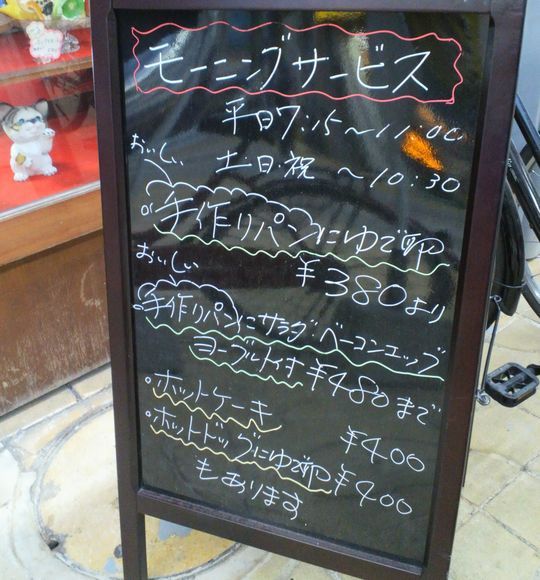 モーニングサービス
平日7:15～11:00
土・日・祝 ～10:30
おいしい
手作りパンにゆで卵
¥380より
おいしい
手作りパンにサラダ・ベーコンエッグ
ヨーグルト付き¥480まで
・ホットケーキ ¥400
・ホットドッグにゆで卵¥400
もあります